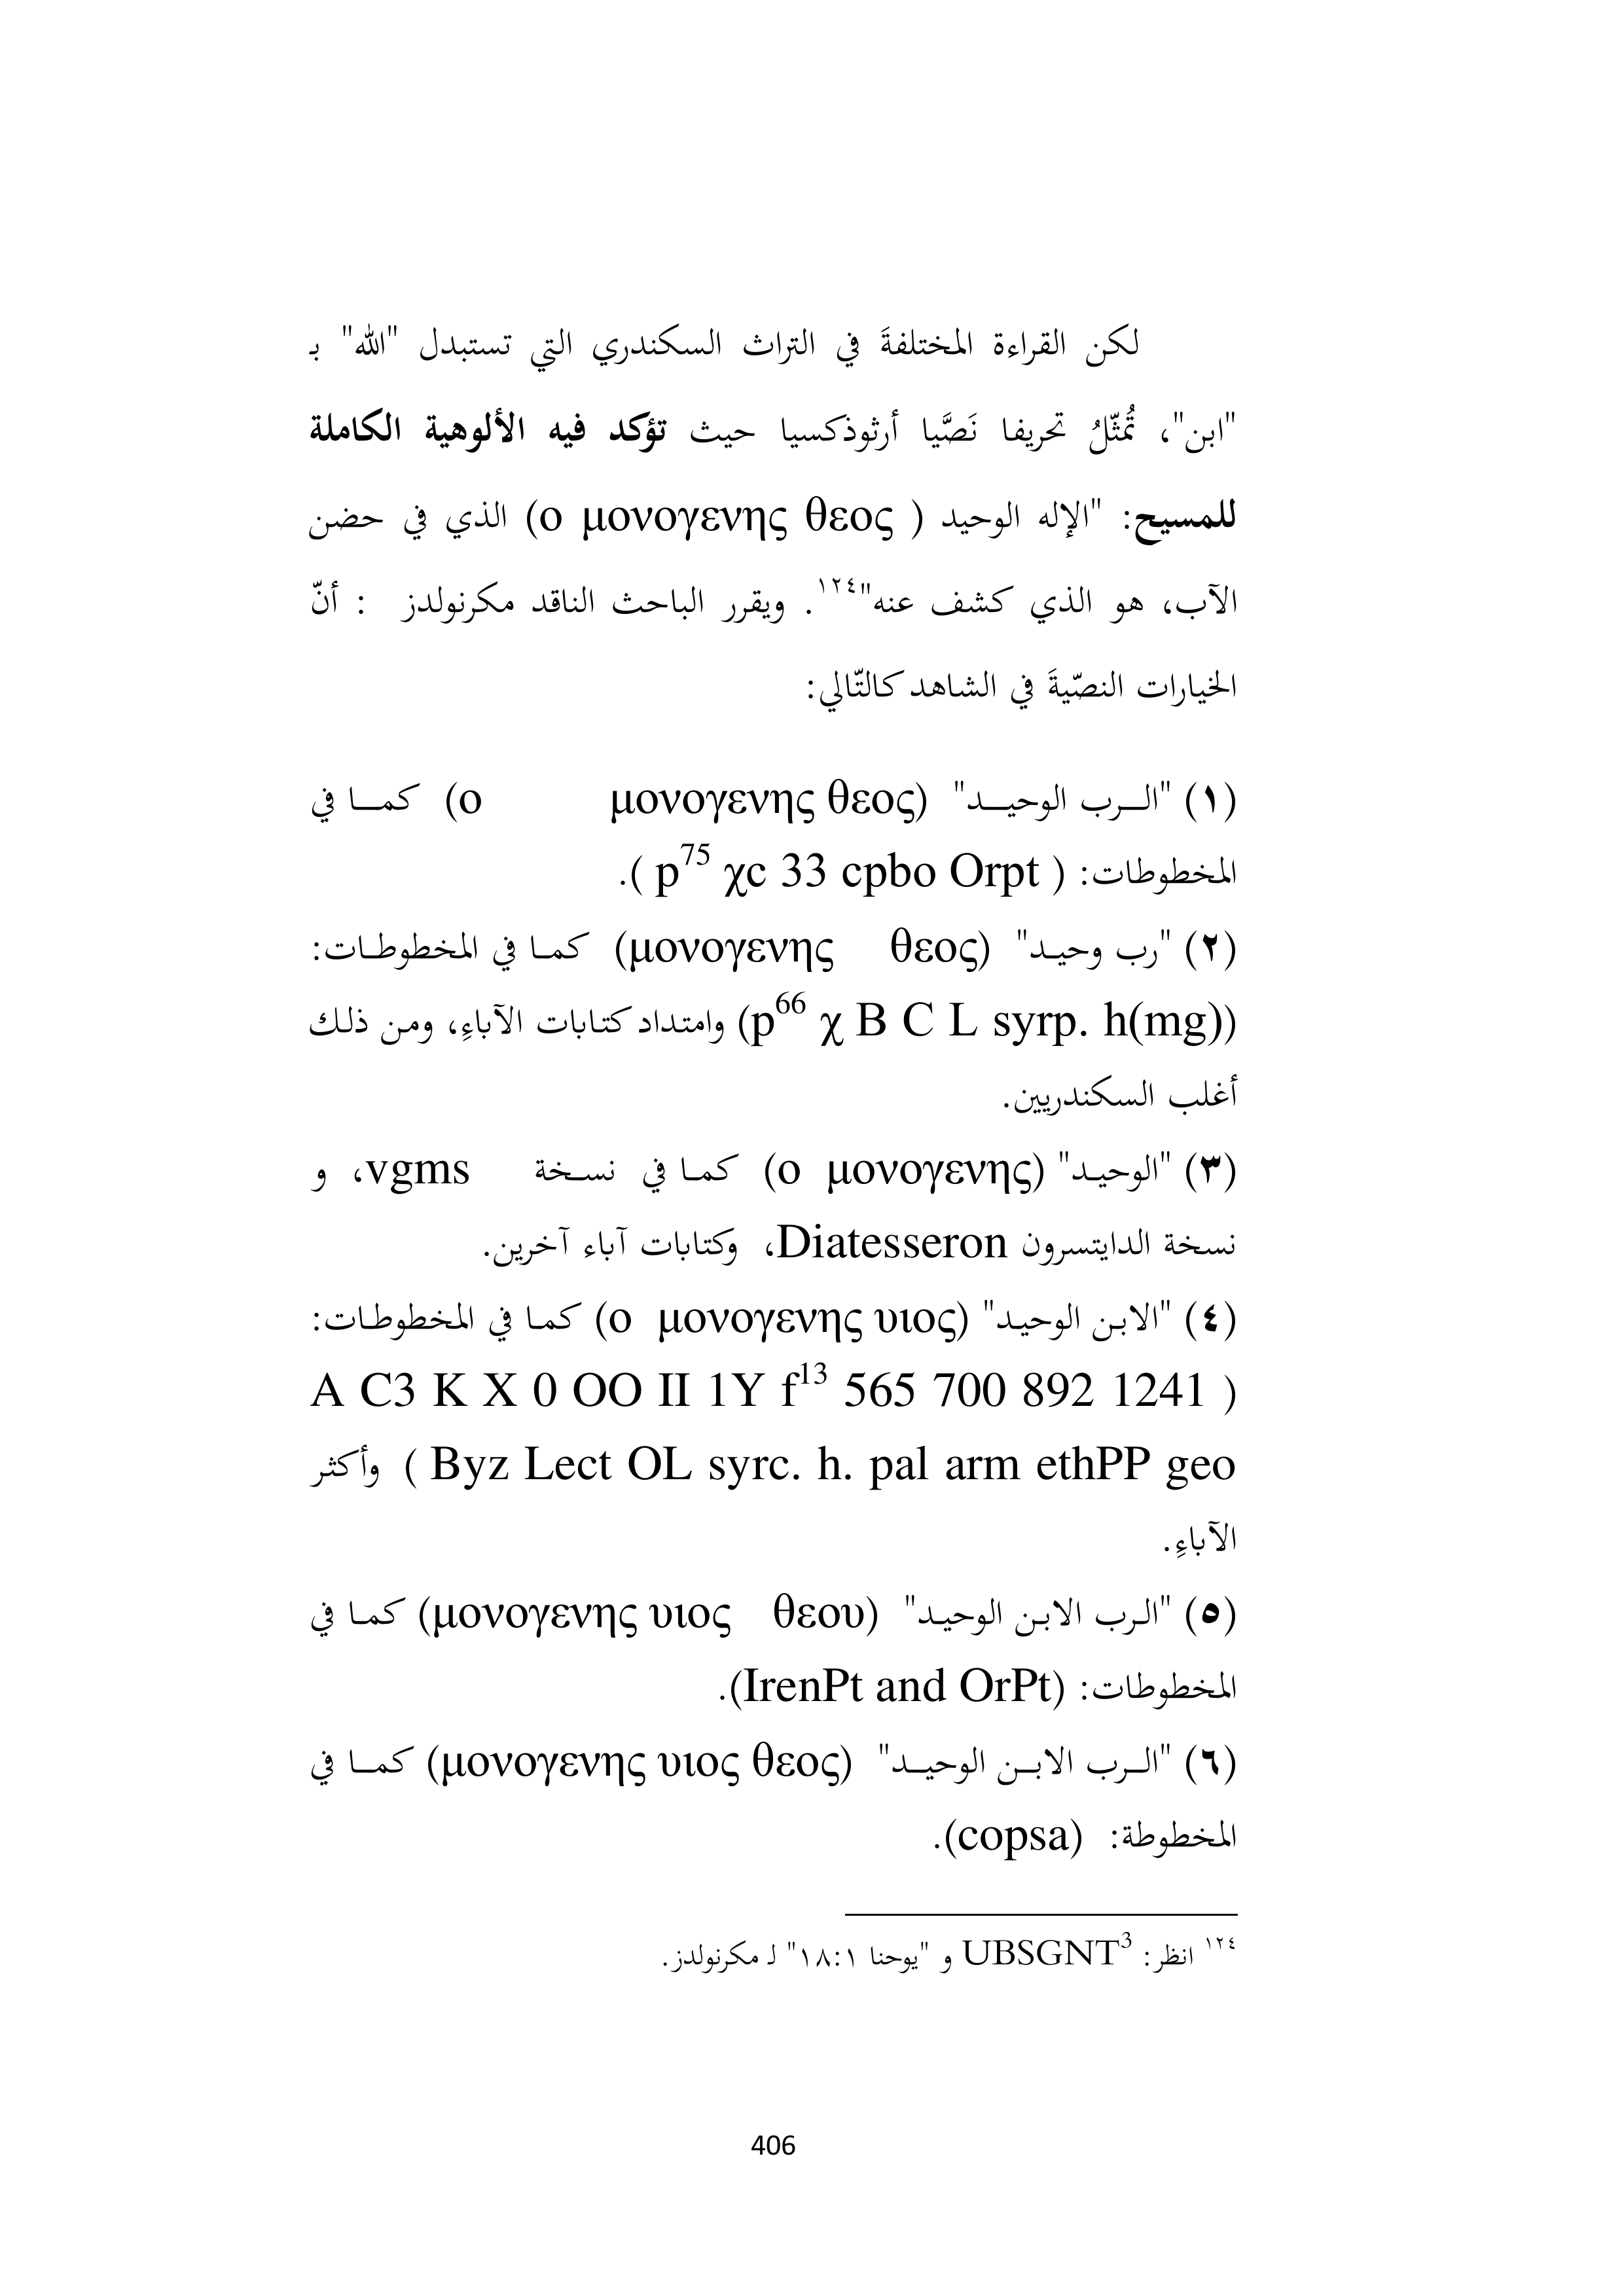 لكن القراءة المختلفةَ في التراث السكندري التي تستبدل "الله" بـ
"ابن"، تُمثّلُ تحريفا نَصَّيا أرثوذكسيا حيث تؤكد فيه الألوهية الكاملة
للمسيح: "الإله الوحيد ( ο μονογενης θεος) الذي في حضن
الآب، هو الذي كشف عنه"١٢٤. ويقرر الباحث الناقد مكرنولدز : أنّ
الخيارات النصّيةَ في الشاهد كالتّالي:
(١) "الـــرب الوحيـــد" (ο μονογενης θεος) كمـــا في
المخطوطات: ( p75 χc 33 cpbo Orpt ).
(٢) "رب وحيـد" (μονογενης θεος) كمـا في المخطوطـات:
(p66 χ B C L syrp. h(mg)) وامتـداد كتـابات الآباءِ، ومـن ذلـك
أغلب السكندريين.
(٣) "الوحيـد" (ο μονογενης) كمـا في نسـخة vgms، و
نسخة الدايتسرون Diatesseron، وكتابات آباء آخرين.
(٤) "الابـن الوحيـد" (ο μονογενης υιος) كمـا في المخطوطـات:
( A C3 K X 0 OO II 1Y f13 565 700 892 1241
Byz Lect OL syrc. h. pal arm ethPP geo ) وأكثـر
الآباءِ.
(٥) "الـرب الابـن الوحيـد" (μονογενης υιος θεου) كمـا في
المخطوطات: (IrenPt and OrPt).
(٦) "الـــرب الابـــن الوحيـــد" (μονογενης υιος θεος) كمـــا في
المخطوطة: (copsa).
١٢٤ انظر: UBSGNT3 و "يوحنا ١:١٨" لـ مكرنولدز.
406